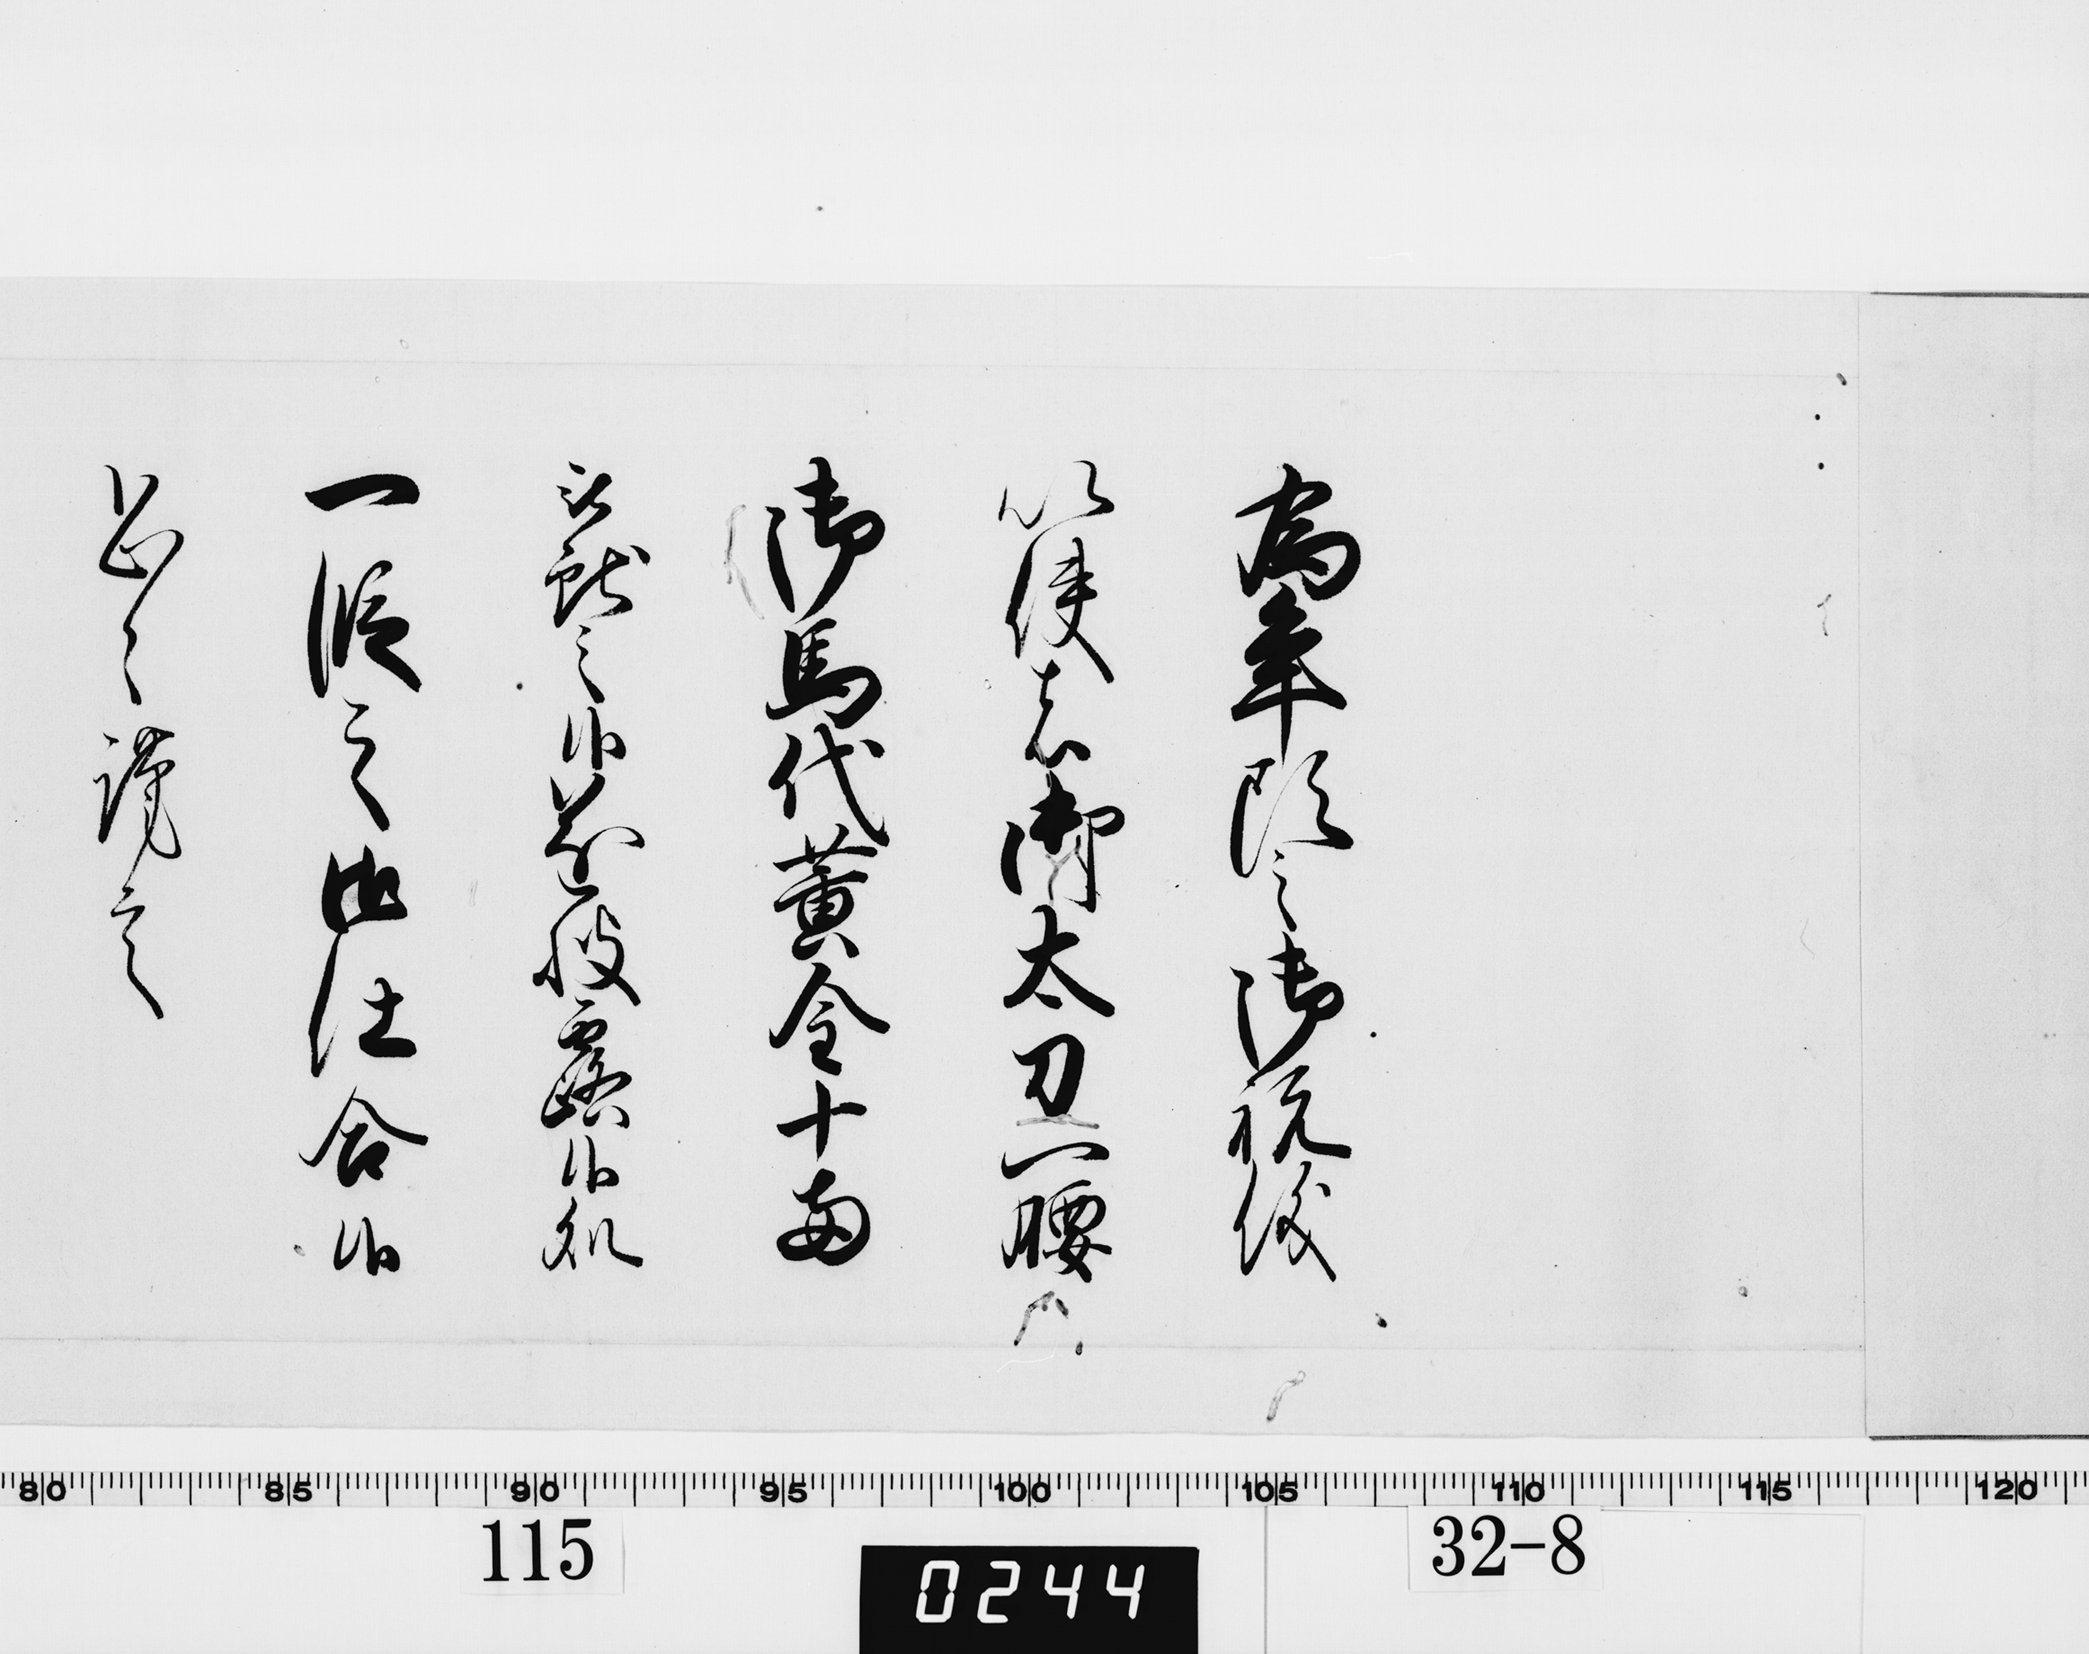 為年頭之御祝儀
以使者御太刀一腰
御馬代黄金十両
被献之候遂披露候処
一段之御仕合候
恐々謹言
80 85 90 95 100 105 110 115 120
115
0244
32-8